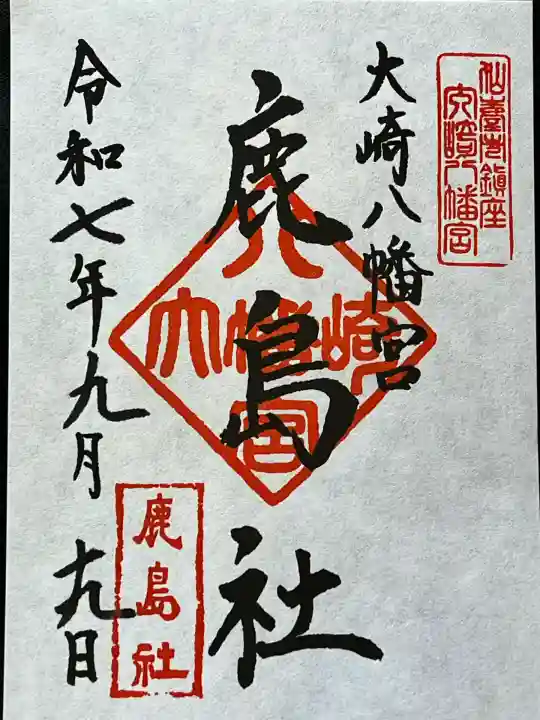 仙臺市鎮座
大崎八幡宮
大崎八幡宮
鹿島社
大崎八幡宮
鹿島社
令和七年九月十九日